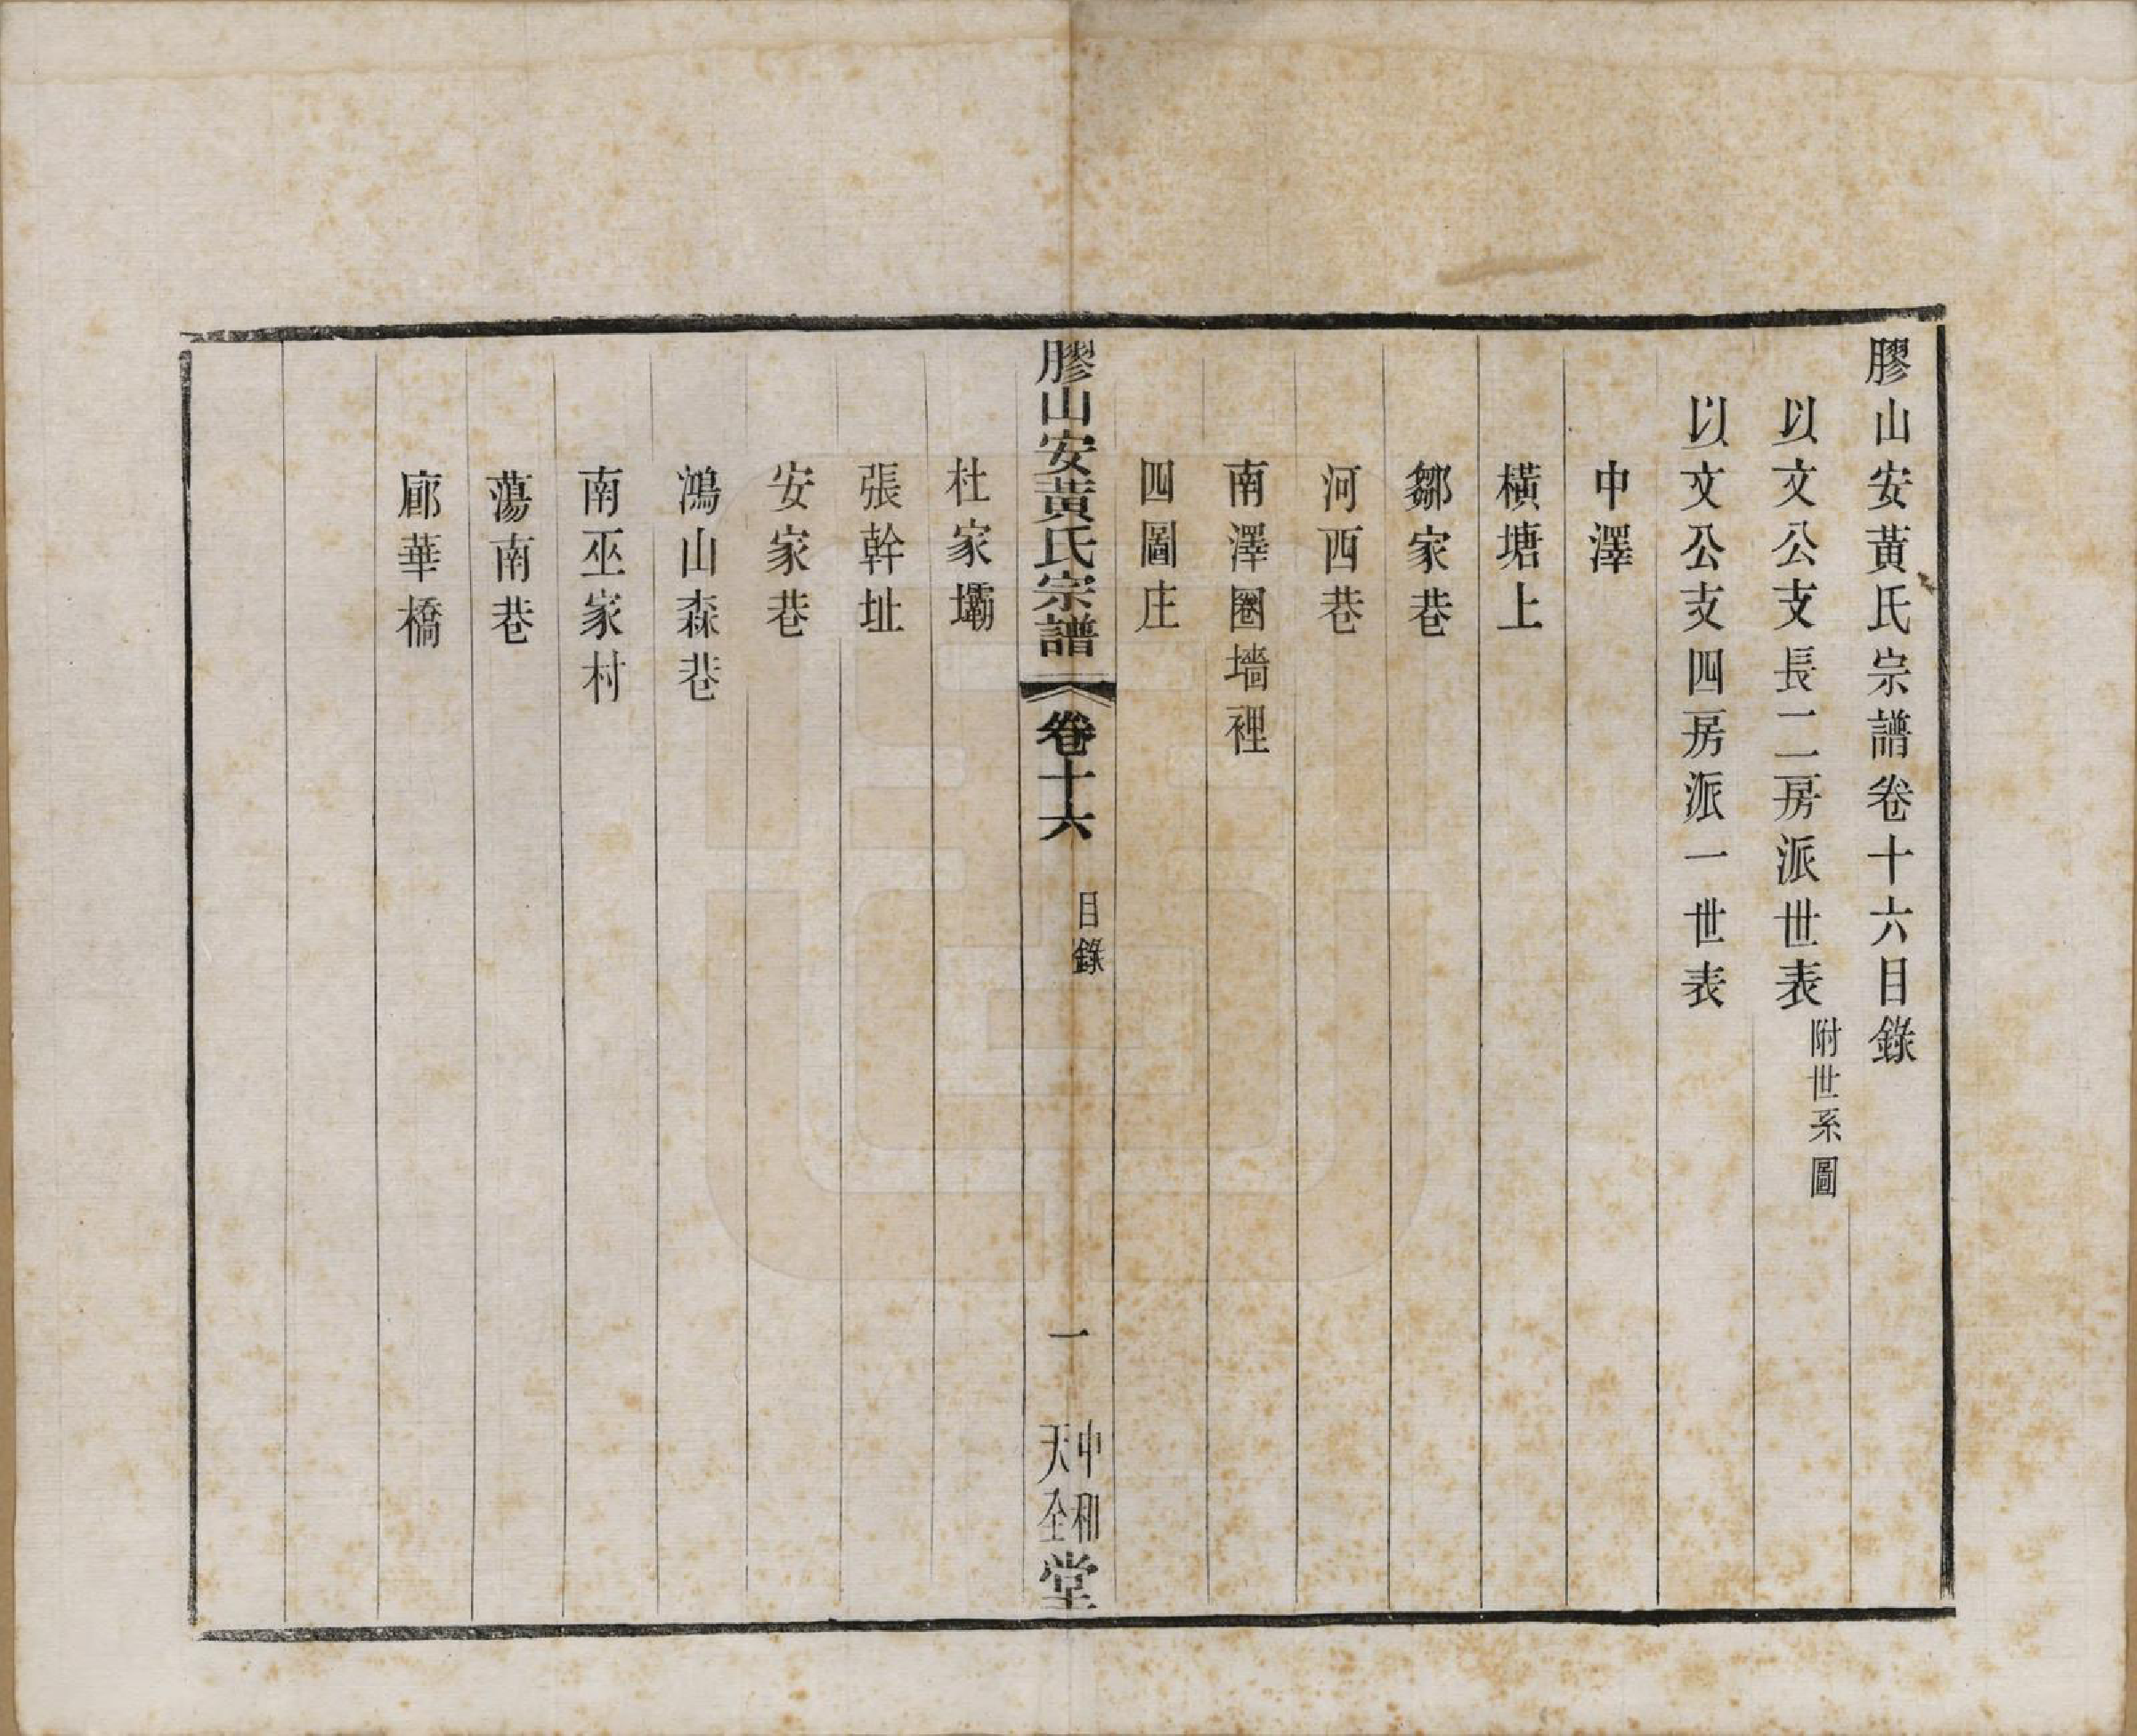 膠山安黃氏宗譜卷十六目錄
以文公支長二房派世表附世系圖
以文公支四房派一世表
中澤
橫塘上
鄒家巷
河西巷
南澤圈墻裡
四圖庄
膠山安黃氏宗譜 卷十六 目錄 一 中和天全堂
杜家壩
張幹址
安家巷
鴻山森巷
南巫家村
蕩南巷
廊華橋